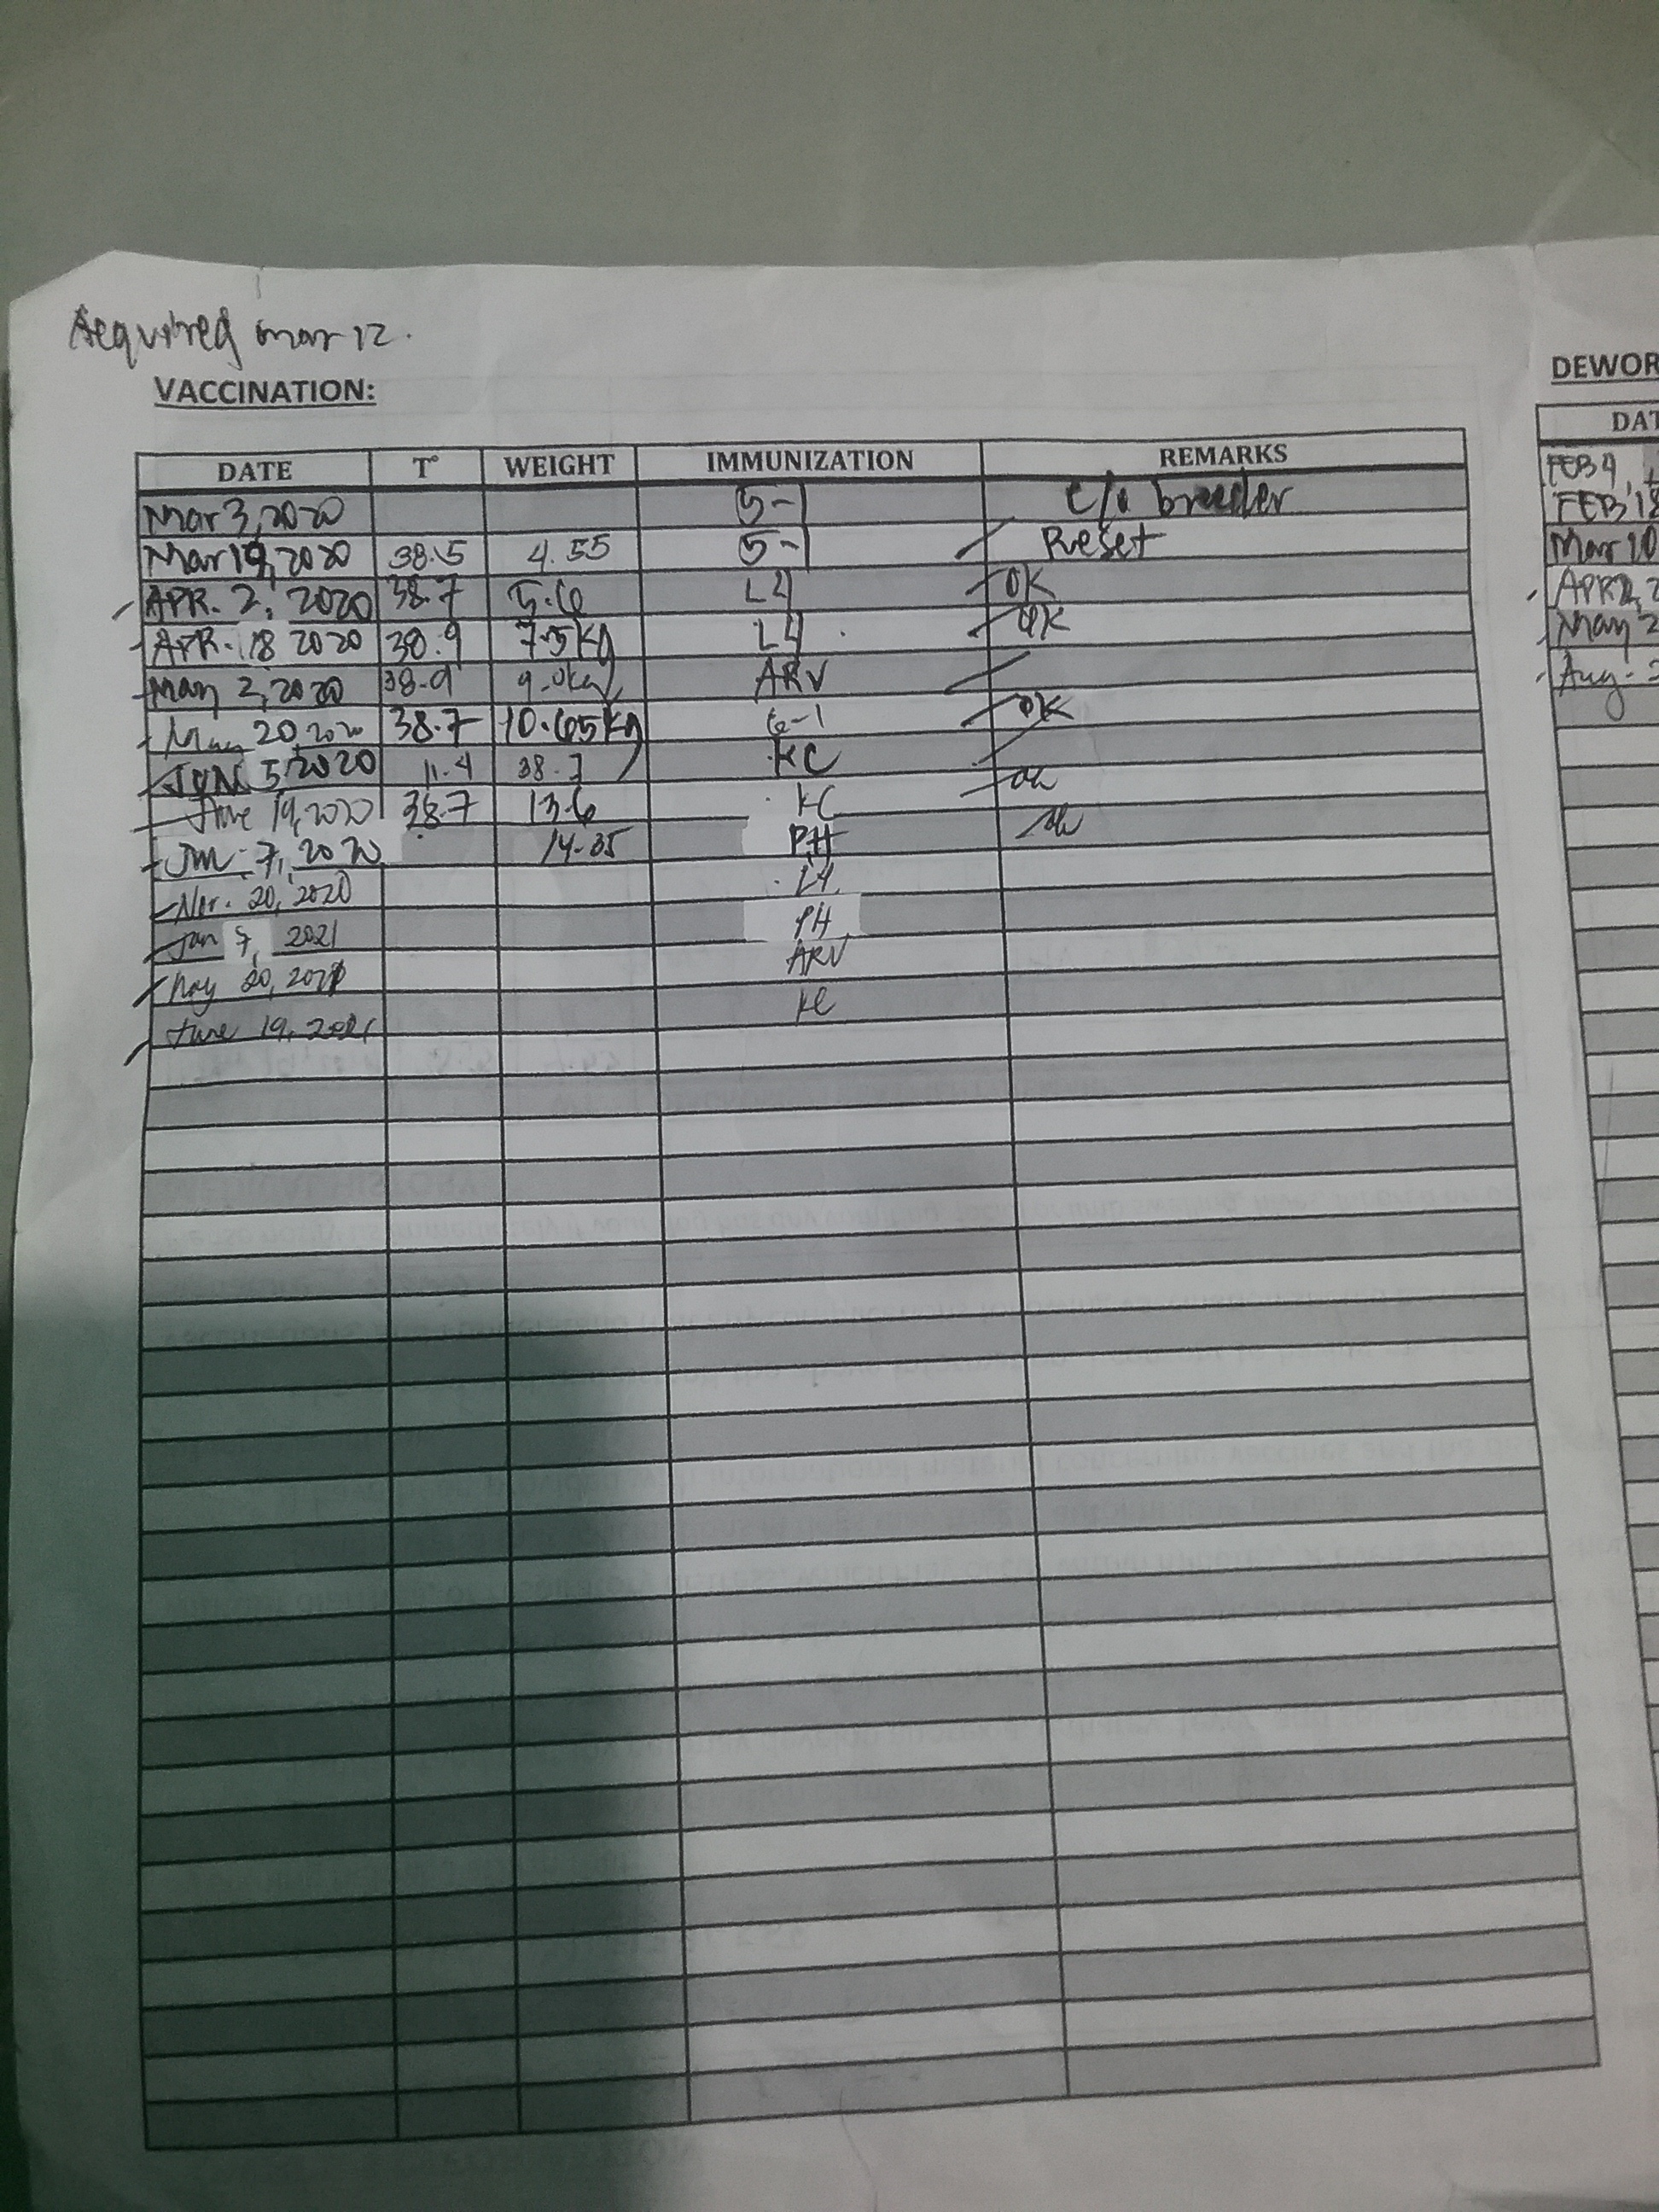 Acquired mar 12.
VACCINATION:
DATE T° WEIGHT IMMUNIZATION REMARKS
Mar 3, 2020 5-1 c/o breeder
Mar 19, 2020 38.5 4.55 5-1 Reset
APR. 2, 2020 38.7 5.6 L4 OK
APR. 18 2020 38.9 7.5kg L4 OK
May 2, 2020 38.9 9.0kg ARV
May 20 2020 38.7 10.65kg 6-1 OK
JUN 5, 2020 11.4 38.7 KC
June 19, 2020 38.7 13.6 KC ok
7, 2020 14.35 PH ok
Nov. 20, 2020 L4
Jan 7, 2021 PH
May 20, 2021 ARV
June 19, 2021 KC
DEWOR
DAT
FEB 4,
FEB 18
Mar 10
APR 2, 2
May 2
Aug. 2